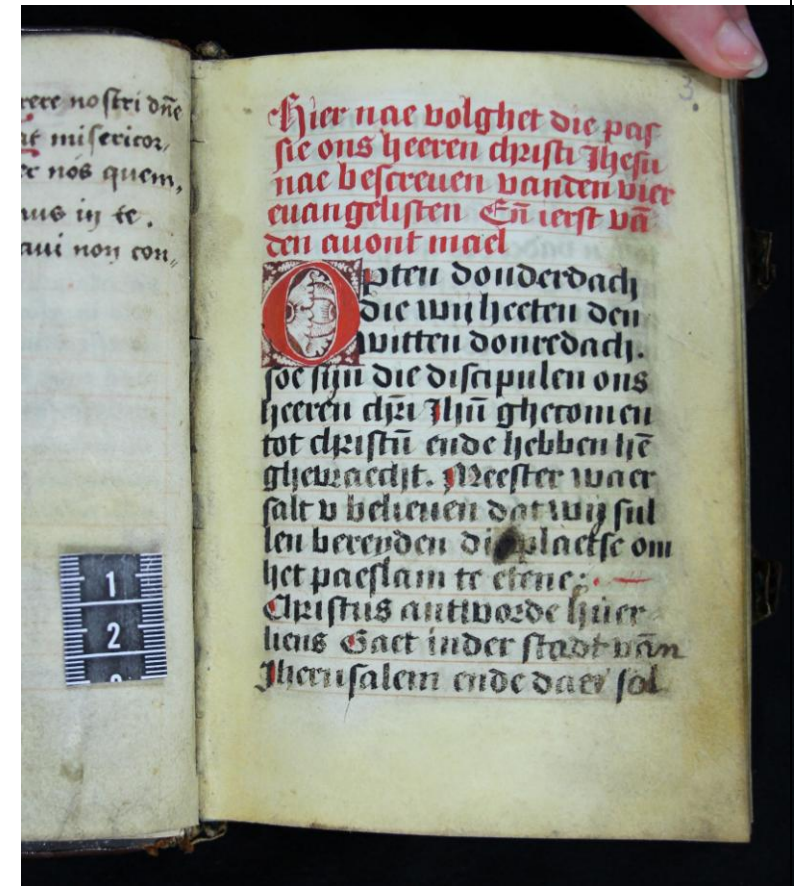 rere nostri dn̄e
at misericor,
er nos quem,
aus in te.
aui non con,,
3.
Hier nae volghet die pas
sie ons heeren christi Jhesu
nae bescreuen vanden vier
euangelisten En̄ ierst vā
den auont mael
Opten donderdach
die wij heeten den
witten donredach.
soe sijn die discipulen ons
heeren chr̄i Jhū ghecomen
tot christū ende hebben hē
ghevraecht. Meester waer
salt v belieuen dat wij sul
len bereyden die plaetse om
het paeslam te etene:.
Christus antworde hùer
liens Gaet inder stadt van
Jherusalem ende daer sol
1
2